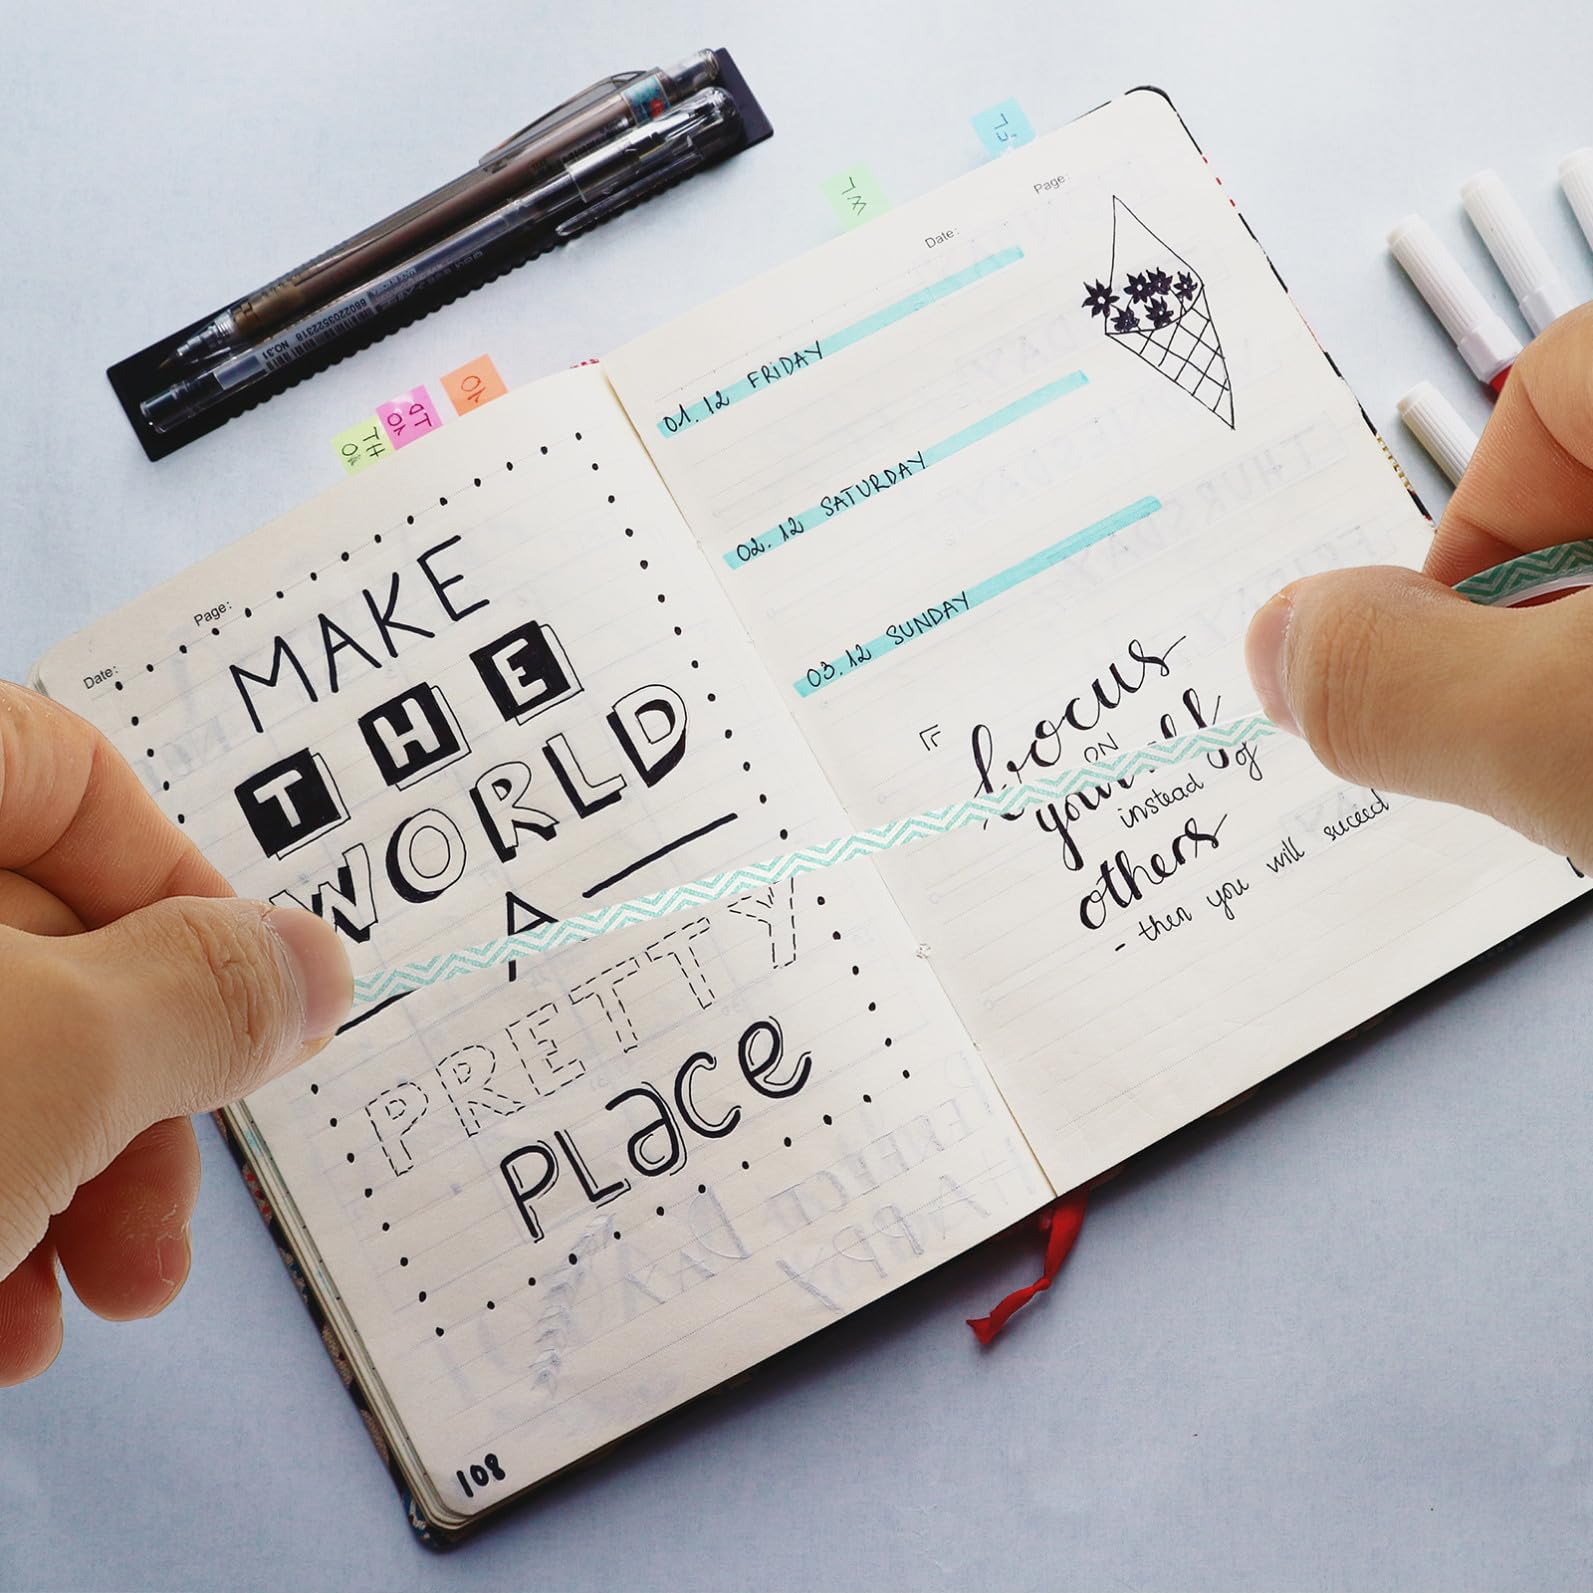 Date:
Page:
MAKE
THE
WORLD
A
PRETTY
PLace
108
Date:
Page:
01.12 FRIDAY
02.12 SATURDAY
03.12 SUNDAY
focus
ON
instead of
others
- then you will succeed
8802203522318 NO.31